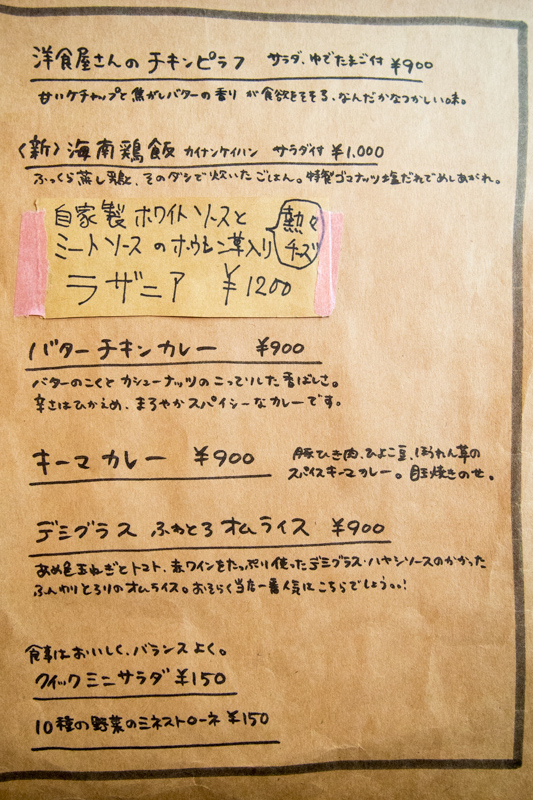 洋食屋さんの チキンピラフ サラダ、ゆでたまご付 ¥900
甘いケチャップと焦がしバターの香り が食欲をそそる、なんだかなつかしい味。
〈新〉海南鶏飯 カイナンケイハン サラダ付 ¥1,000
ふっくら蒸し鶏と、そのダシで炊いたごはん。特製ゴマナッツ塩だれでめしあがれ。
自家製 ホワイトソースと 熱々
ミートソース のホウレン草入り チーズ
ラザニア ¥1200
バターチキンカレー ¥900
バターのこくと カシューナッツのこってりした香ばしさ。
辛さはひかえめ、まろやかスパイシーなカレーです。
キーマ カレー ¥900
豚ひき肉、ひよこ豆、ほうれん草の
スパイスキーマカレー。目玉焼きのせ。
デミグラス ふわとろ オムライス ¥900
あめ色玉ねぎとトマト、赤ワインをたっぷり使ったデミグラス・ハヤシソースのかかった
ふんわりとろりのオムライス。おそらく当店一番人気はこちらでしょう。。!
食事はおいしく、バランスよく。
クイックミニサラダ ¥150
10種の野菜のミネストローネ ¥150